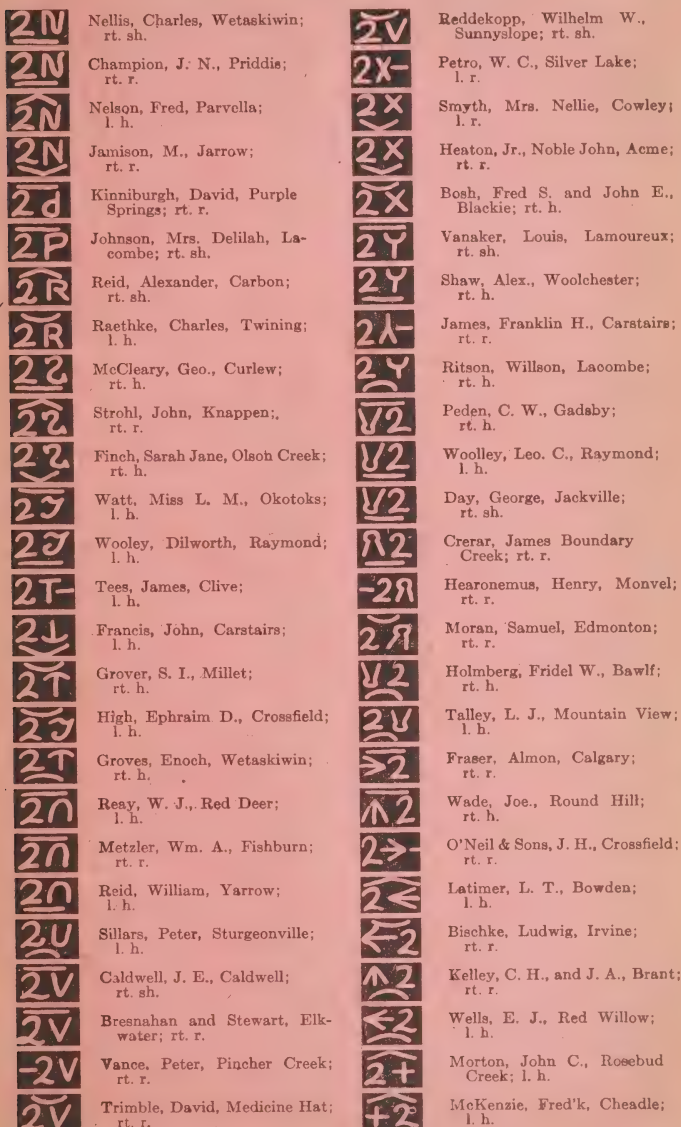 Nellis, Charles, Wetaskiwin;
rt. sh.
Champion, J. N., Priddis;
rt. r.
Nelson, Fred, Parvella;
l. h.
Jamison, M., Jarrow;
rt. r.
Kinniburgh, David, Purple
Springs; rt. r.
Johnson, Mrs. Delilah, La-
combe; rt. sh.
Reid, Alexander, Carbon;
rt. sh.
Raethke, Charles, Twining;
l. h.
McCleary, Geo., Curlew;
rt. h.
Strohl, John, Knappen;
rt. r.
Finch, Sarah Jane, Olsoh Creek;
rt. h.
Watt, Miss L. M., Okotoks;
l. h.
Wooley, Dilworth, Raymond;
l. h.
Tees, James, Clive;
l. h.
Francis, John, Carstairs;
l. h.
Grover, S. I., Millet;
rt. h.
High, Ephraim D., Crossfield;
l. h.
Groves, Enoch, Wetaskiwin;
rt. h.
Reay, W. J., Red Deer;
l. h.
Metzler, Wm. A., Fishburn;
rt. r.
Reid, William, Yarrow;
l. h.
Sillars, Peter, Sturgeonville;
l. h.
Caldwell, J. E., Caldwell;
rt. sh.
Bresnahan and Stewart, Elk-
water; rt. r.
Vance, Peter, Pincher Creek;
rt. r.
Trimble, David, Medicine Hat;
rt. r.
Reddekopp, Wilhelm W.,
Sunnyslope; rt. sh.
Petro, W. C., Silver Lake;
l. r.
Smyth, Mrs. Nellie, Cowley;
l. r.
Heaton, Jr., Noble John, Acme;
rt. r.
Bosh, Fred S. and John E.,
Blackie; rt. h.
Vanaker, Louis, Lamoureux;
rt. sh.
Shaw, Alex., Woolchester;
rt. h.
James, Franklin H., Carstairs;
rt. r.
Ritson, Willson, Lacombe;
rt. h.
Peden, C. W., Gadsby;
rt. h.
Woolley, Leo. C., Raymond;
l. h.
Day, George, Jackville;
rt. sh.
Crerar, James Boundary
Creek; rt. r.
Hearonemus, Henry, Monvel;
rt. r.
Moran, Samuel, Edmonton;
rt. r.
Holmberg, Fridel W., Bawlf;
rt. h.
Talley, L. J., Mountain View;
l. h.
Fraser, Almon, Calgary;
rt. r.
Wade, Joe., Round Hill;
rt. h.
O'Neil & Sons, J. H., Crossfield;
rt. r.
Latimer, L. T., Bowden;
l. h.
Bischke, Ludwig, Irvine;
rt. r.
Kelley, C. H., and J. A., Brant;
rt. r.
Wells, E. J., Red Willow;
l. h.
Morton, John C., Rosebud
Creek; l. h.
McKenzie, Fred'k, Cheadle;
l. h.